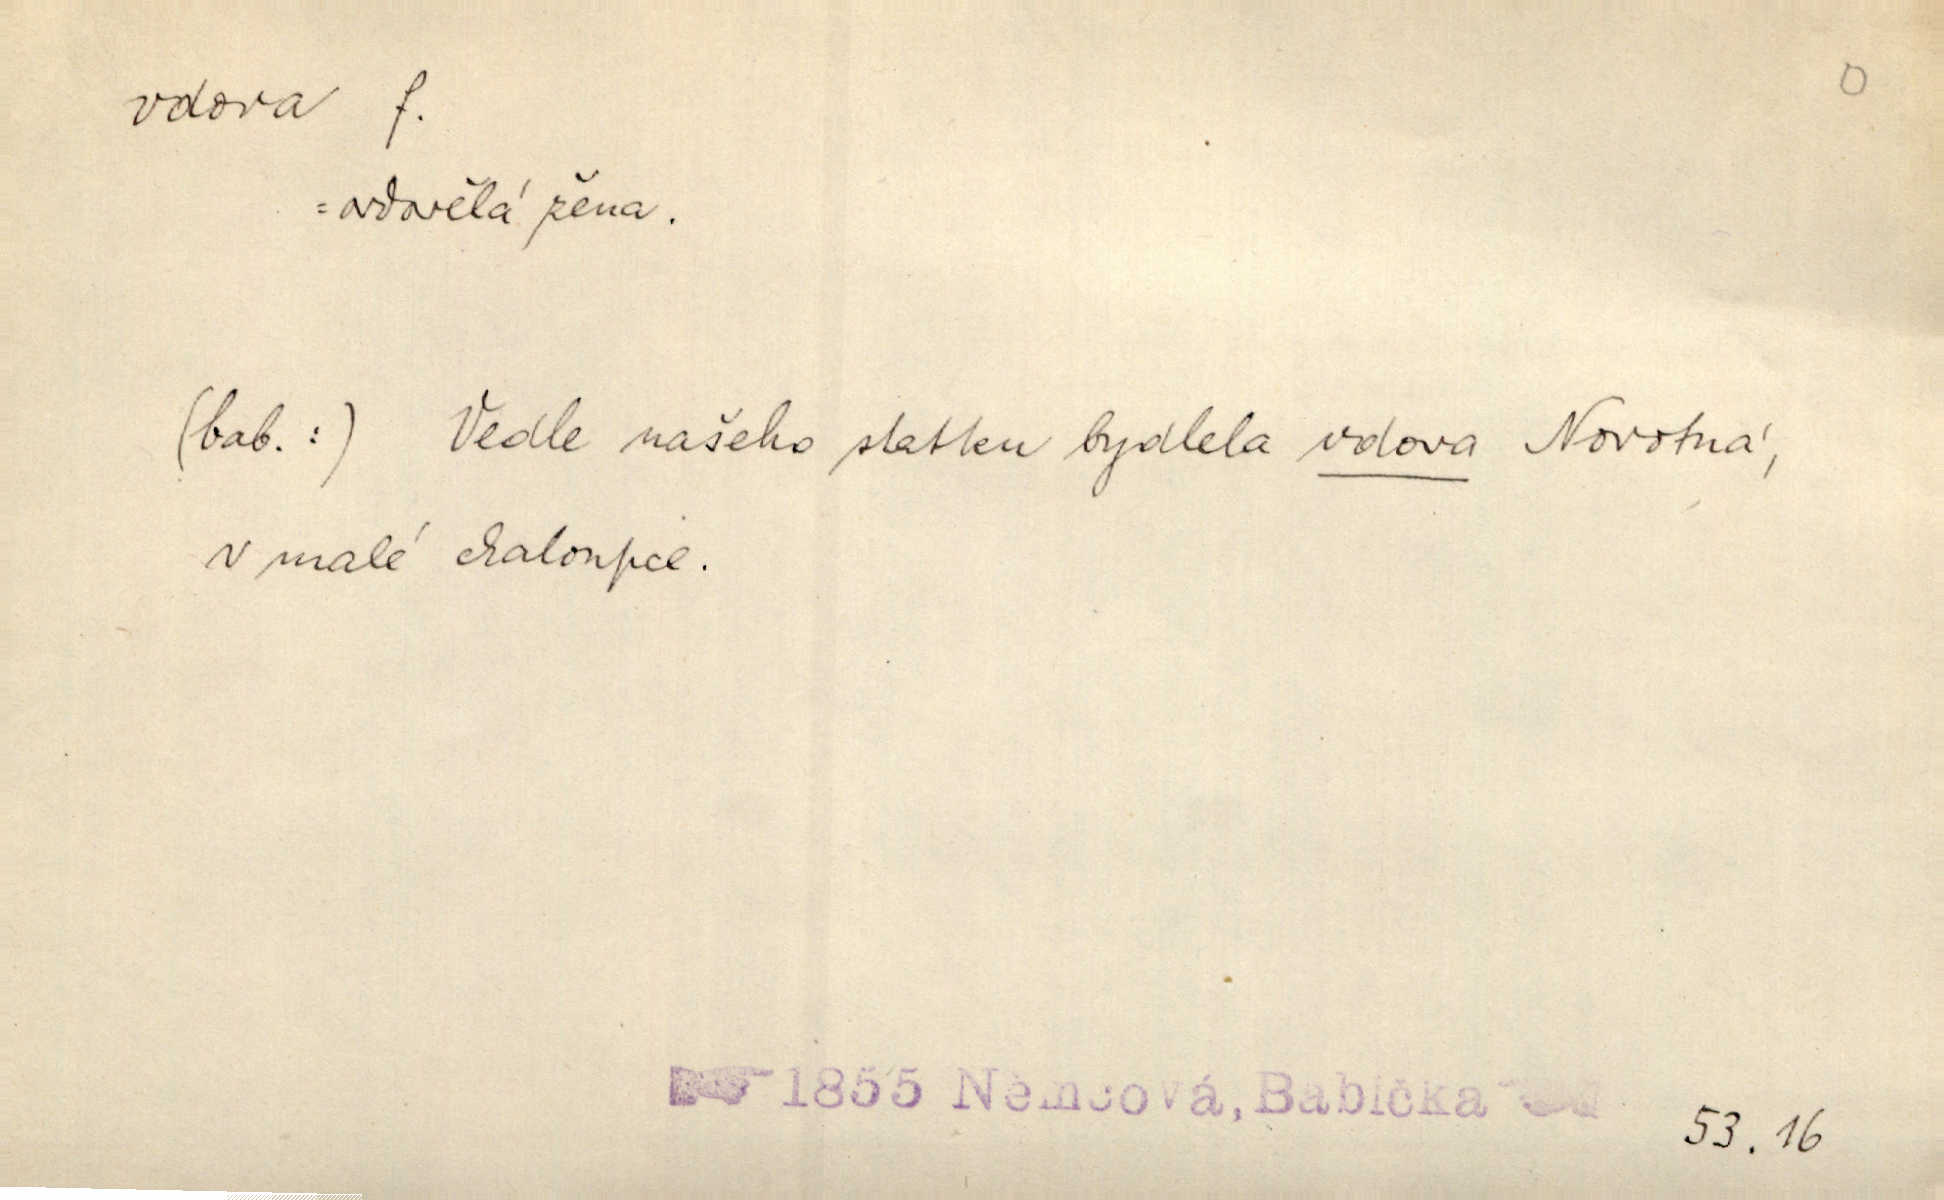 vdova f. O
= ovdovělá žena.
(bab. :) Vedle našeho statku bydlela vdova Novotná,
v malé chaloupce.
1855 Němcová, Babička
53.16